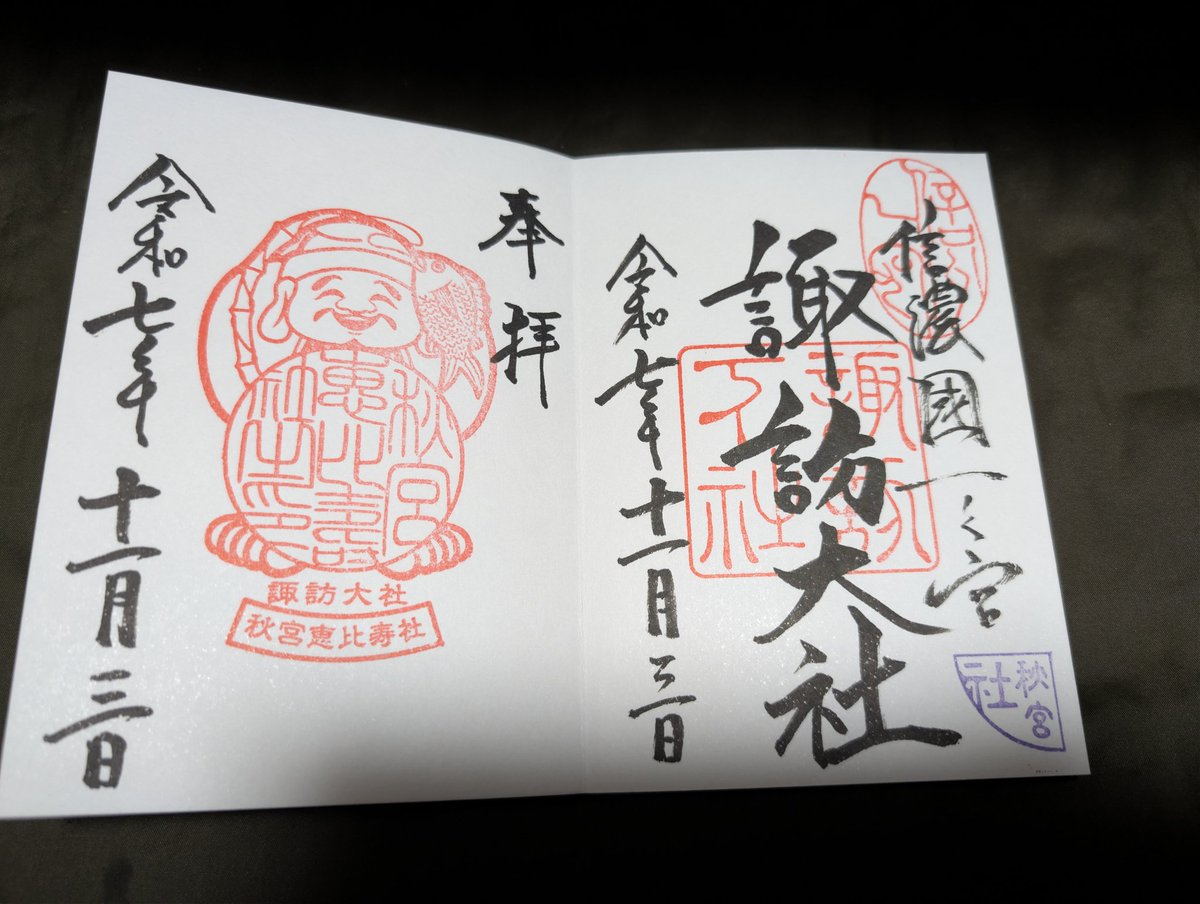 信濃國一之宮
諏訪大社
諏訪大社
令和七年十一月三日
秋宮社
奉拝
秋宮恵比寿社之印
諏訪大社
秋宮恵比寿社
令和七年十一月三日